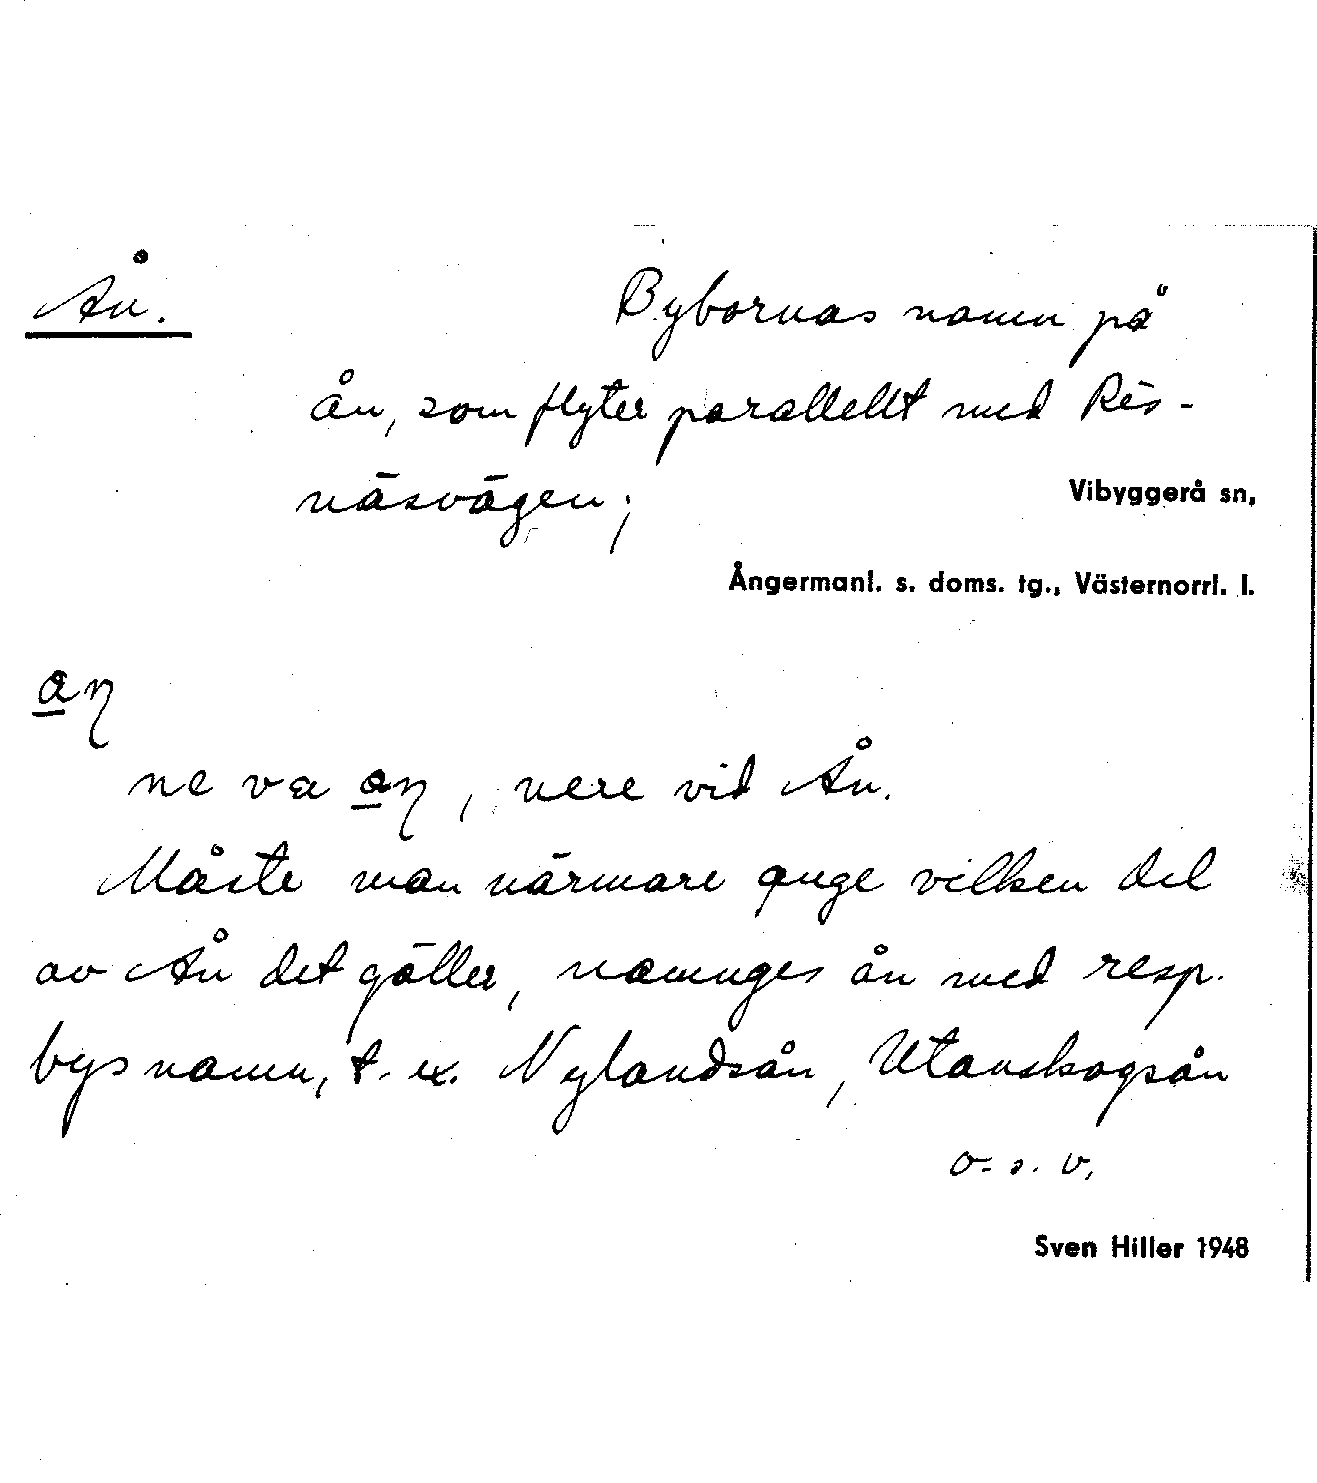 Ån.
Bybornas namn på
ån, som flyter parallellt med Res-
näsvägen;
Vibyggerå sn,
Ångermanl. s. doms. tg., Västernorrl. l.
ne va
, nere vid Ån.
Måste man närmare ange vilken del
av Ån det gäller, namnges ån med resp.
bys namn, t. ex. Nylandsån, Utanskogsån
o. s. v.
Sven Hiller 1948